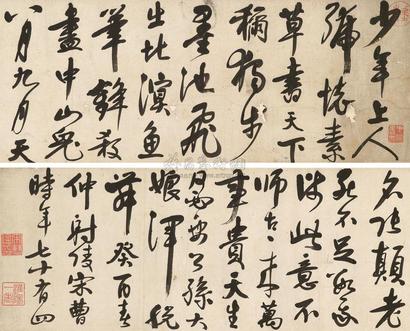 少年上人
號懷素
草書天下
稱獨步
墨池飛
出北溟魚
筆鋒殺
盡中山兔
八月九月天
名張顛老
死不足數我
師此意不
師古〻來萬
事貴天生
何必要公孫大
娘渾脫
舞癸酉春
仲射陵宋曹
時年七十有四